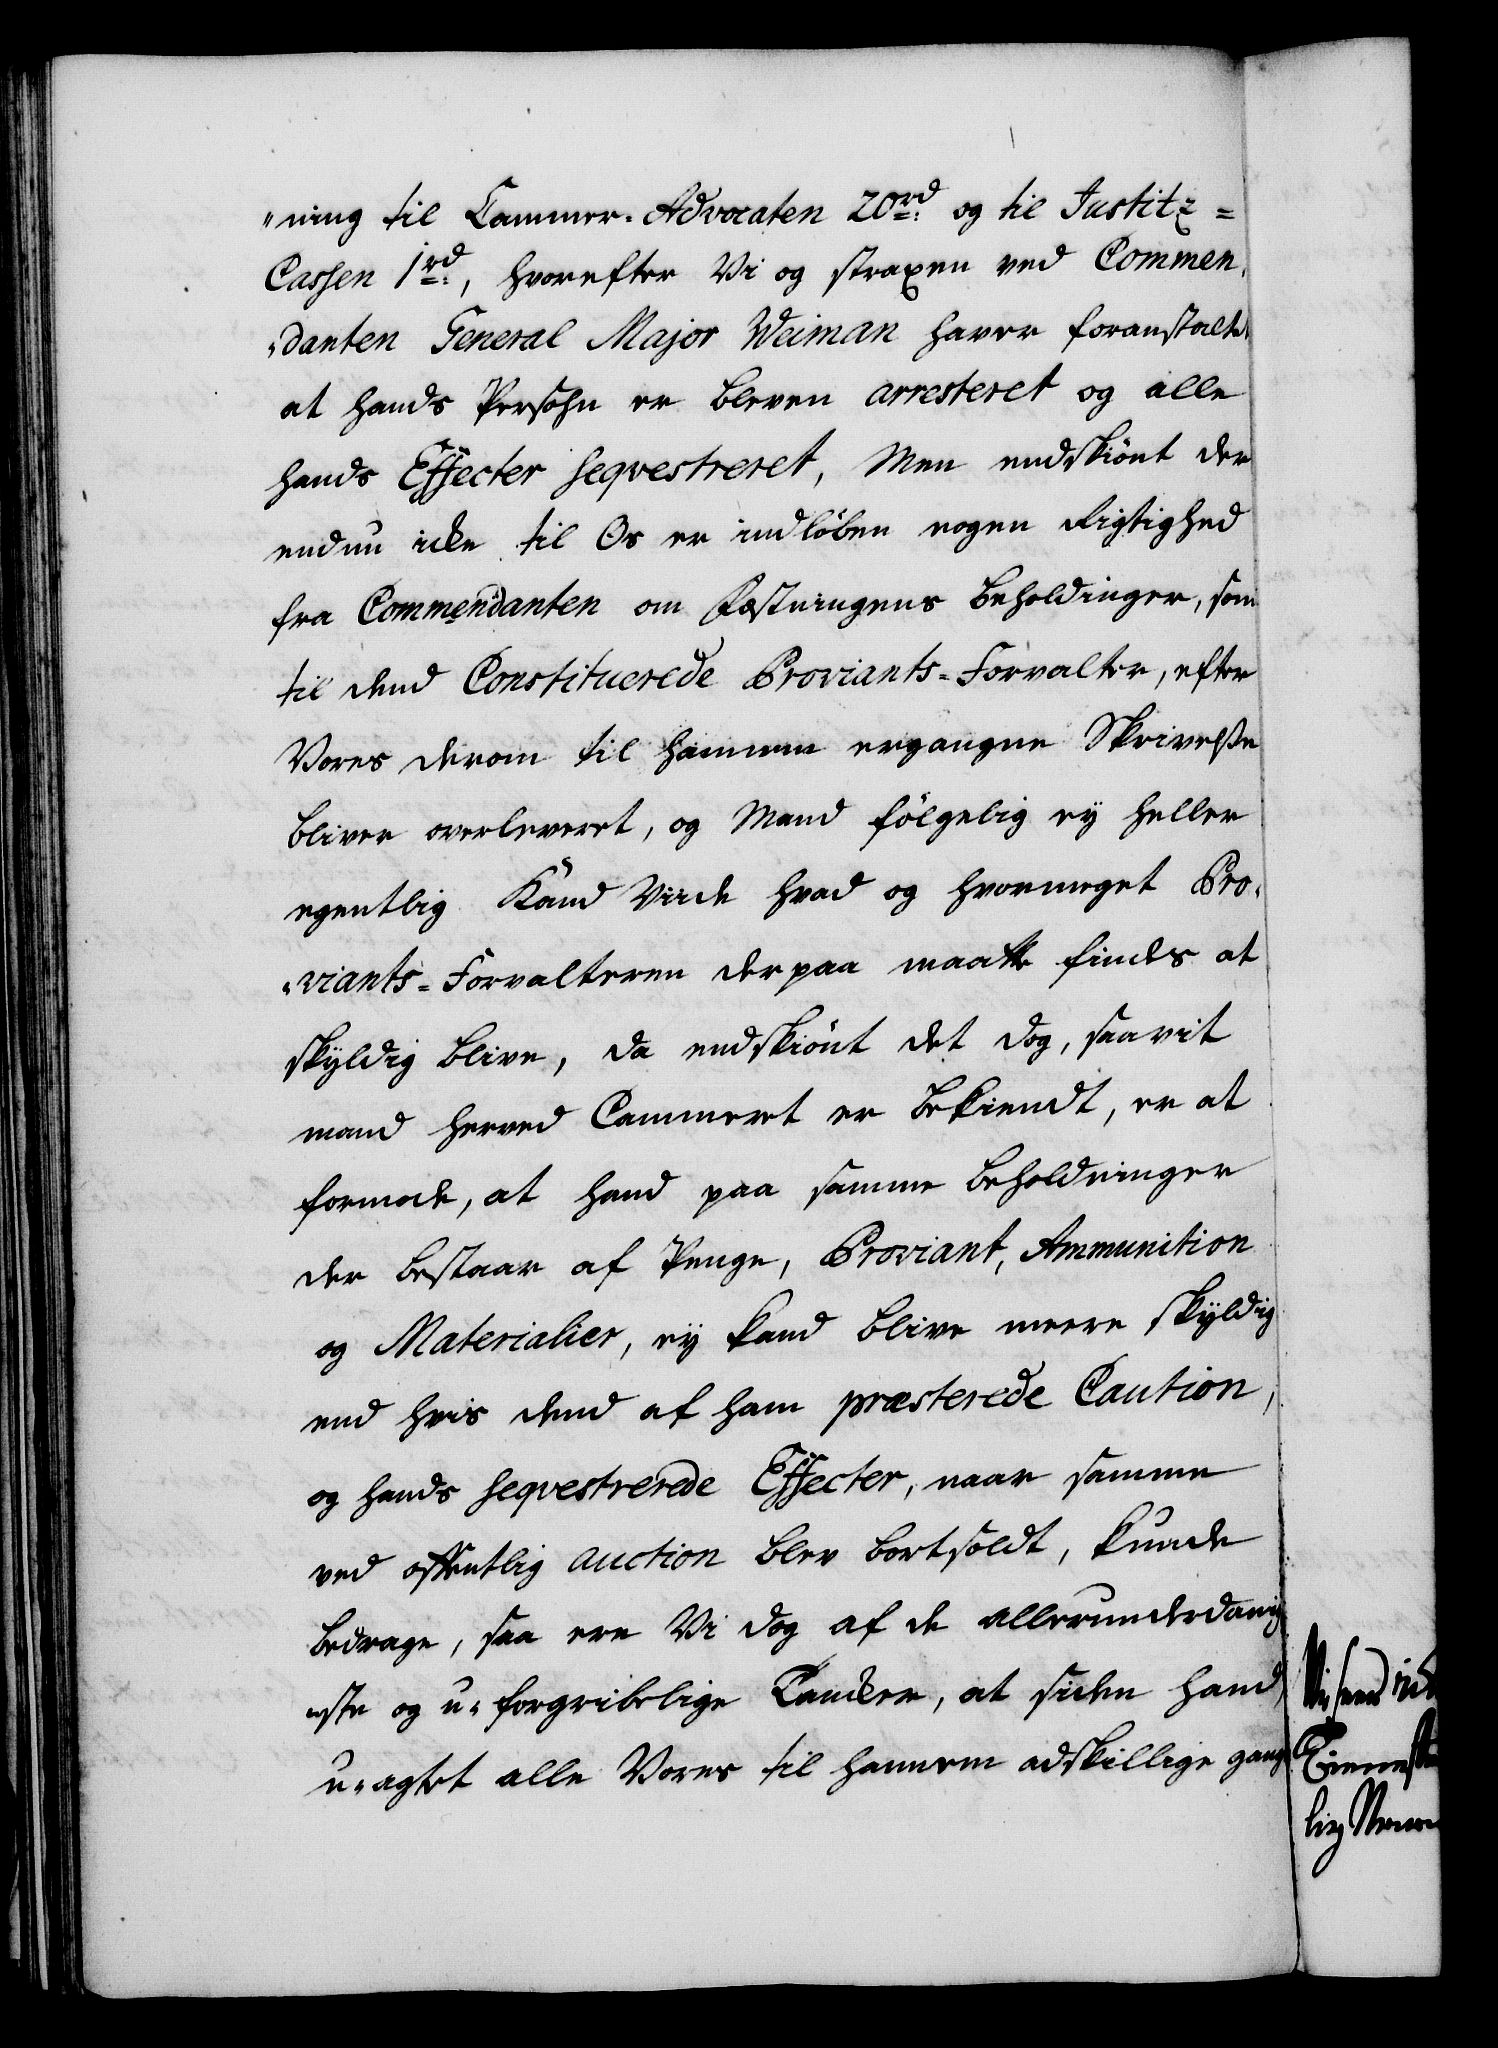 "ning til Cammer-Advocaten 20rd. og til Justitz=
Cassen 1rd., hvorefter Vi og straxen ved Commen,
"danten General Major Weiman haver foranstalted
at hands Persohn er bleven arresteret og alle
hands Effecter seqvestreret, Men endskiönt der
endnu icke til Os er indlöben nogen Rigtighed
fra Commendanten om Fæstningens Beholdinger, som
til dend Constituerede Proviants-Forvalter, efter
Vores derom til hannem ergangne Skrivelße
bliver overleveret, og Mand fölgelig ey heller
egentlig Kand Viide hvad og hvormeget Pro,
"viants-Forvalteren derpaa maatte findes at
skyldig blive, da endskiönt det dog, saavit
mand herved Cammeret er bekiendt, er at
formode, at hand paa samme beholdninger
der bestaar af Penge, Proviant, Ammunition
og Materialier, ey kand blive meere skyldig
end hvis dend af ham præsterede Caution,
og hands seqvestrerede Effecter, naar samme
ved offentlig auction blev bortsoldt, kunde
bedrage, saa ere Vi dog af de allerunderdanig
"ste og u-forgribelige Tancker, at siden hand
u-agtet alle Vores til hannem adskillige gange